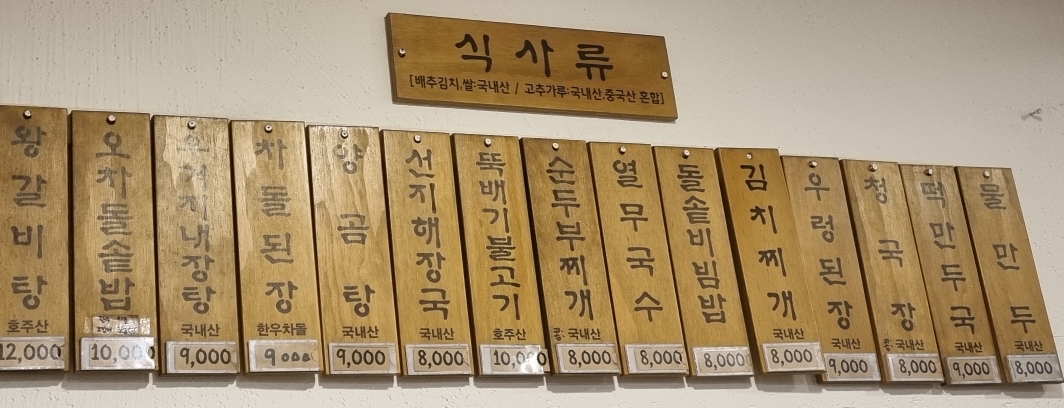 식사류
[배추김치,쌀:국내산 / 고추가루:국내산,중국산 혼합]
왕갈비탕
호주산
12,000
오차돌솥밥
10,000
우거지내장탕
국내산
9,000
차돌된장
한우차돌
9000
양곰탕
국내산
9,000
선지해장국
국내산
8,000
뚝배기불고기
호주산
10,000
순두부찌개
콩:국내산
8,000
열무국수
8,000
돌솥비빔밥
8,000
김치찌개
국내산
8,000
우렁된장
국내산
9,000
청국장
콩:국내산
8,000
떡만두국
국내산
9,000
물만두
국내산
8,000